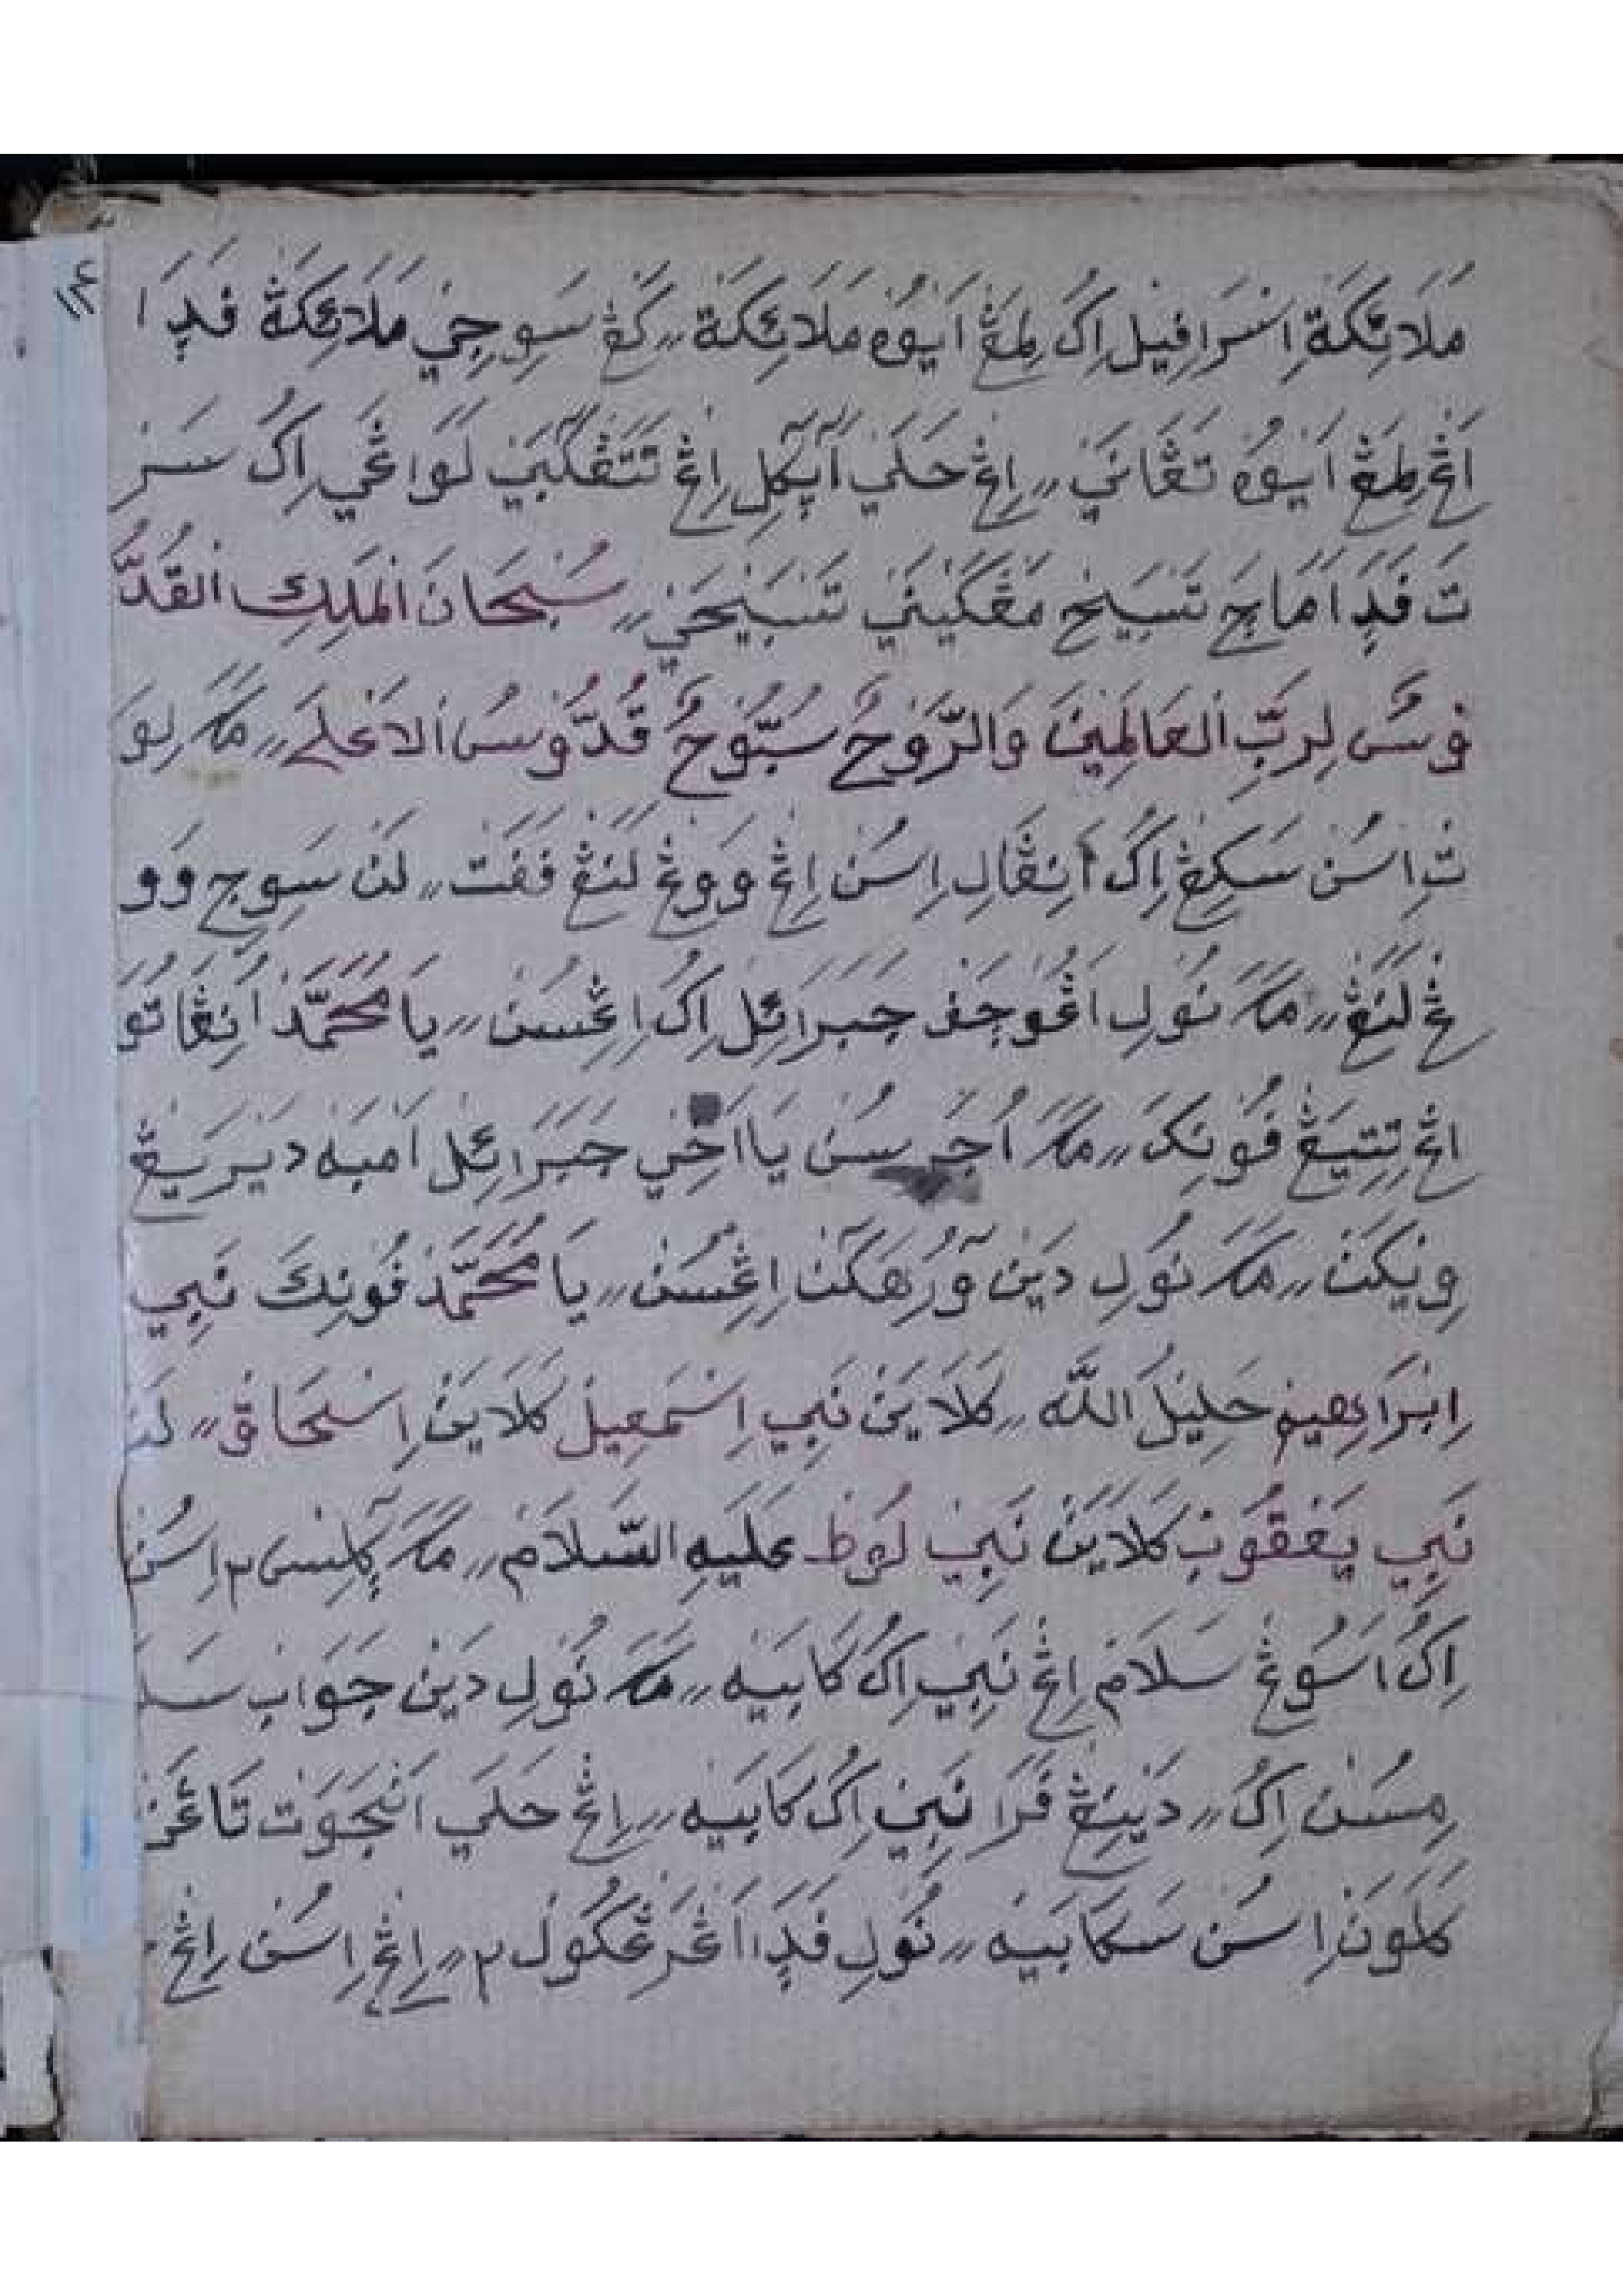 ١١٤
مَلَائِكَةْ اِسْرَافِيْل اِكُ لِمَڠْ اَيوُهْ مَلَائِكَةْ ۔ كَڠْ سَوِجِيْ مَلَائِكَةْ فَدٖا
اَڠْ لِمَڠْ اَيوُهْ تَڠَانَيْ ۔ اِڠْ حَلَيْ اٰبٖكَلْ اِڠْ تَتَڠْكَبَيْ لَوَاڠَيْ اِكُ سَرْ
تَ فَدَا مَاجَ تَسْبِيْحْ مَڠْكَيْنَيْ تَسْبِيْحَيْ ۔ سُبْحَانَ الْمَلِكِ الْقُدُّ
وْسُ لِرَبِّ الْعَالَمِيْنَ وَالرُّوْحُ سُبُّوْحٌ قُدُّوْسُ الْاَعْلَى ۔ مَكَ لِوَ
تِ اِسُنْ سَكِڠْ اِكُ اَنِڠَالِ اِسُنْ اِڠْ وَوڠْ لَنَڠْ فَفَتْ ۔ لَنْ سَوِجِ وَو
ڠْ لَنَڠْ ۔ مَكَ نُوْلِ اَڠُوجَفْ جَبَرَائِلْ اِكُ اِڠْسُنْ ۔ يَا مُحَمَّدْ اَنِڠَاتُوَ
اِڠْ تِتِيَڠْ فُوْنِكَ ۔ مَكَ اُجَرِسُنْ يَا اَخِيْ جَبَرَائِلْ اَمْبَهْ دَيْرَيڠْ
وِيْكَنْ ۔ مَكَ نُوْلِ دَيْنْ وٓرُهَكٓنْ اِڠْسُنْ ۔ يَا مُحَمَّدْ فُوْنِكَ نَبِي
اِبْرَاهِيْمْ حَلِيْلُ اللّٰه ۔ كَلَايَنْ نَبِي اِسْمَعِيلْ كَلَايَنْ اِسْحَاقْ ۔ لَنْ
نَبِي يَعْقُوْبْ كَلَايَنْ نَبِيْ لُوْطْ عَلَيْهِ السَّلَامْ ۔ مَكَ كٓلِسٖى٢ اِسُنْ
اِكُ اَسُوڠْ سَلَامْ اِڠْ نَبِيْ اِكُ كَابَيَهْ ۔ مَكَ نُوْلِ دَيْنْ جَوَابْ سَلَ
مِسُنْ اِكُ ۔ دَيْنِڠْ فَرَا نَبِيْ اِكُ كَابَيَهْ ۔ اِڠْ حَلَيْ اَنْجَوَتْ تَاڠَنْ
كَلَوَنْ اِسُنْ سَكَابَيَهْ ۔ نُوْلِ فَدٖا اَڠْرَڠْكُولْ٢ ۔ اِڠْ اِسُنْ اِڠْ